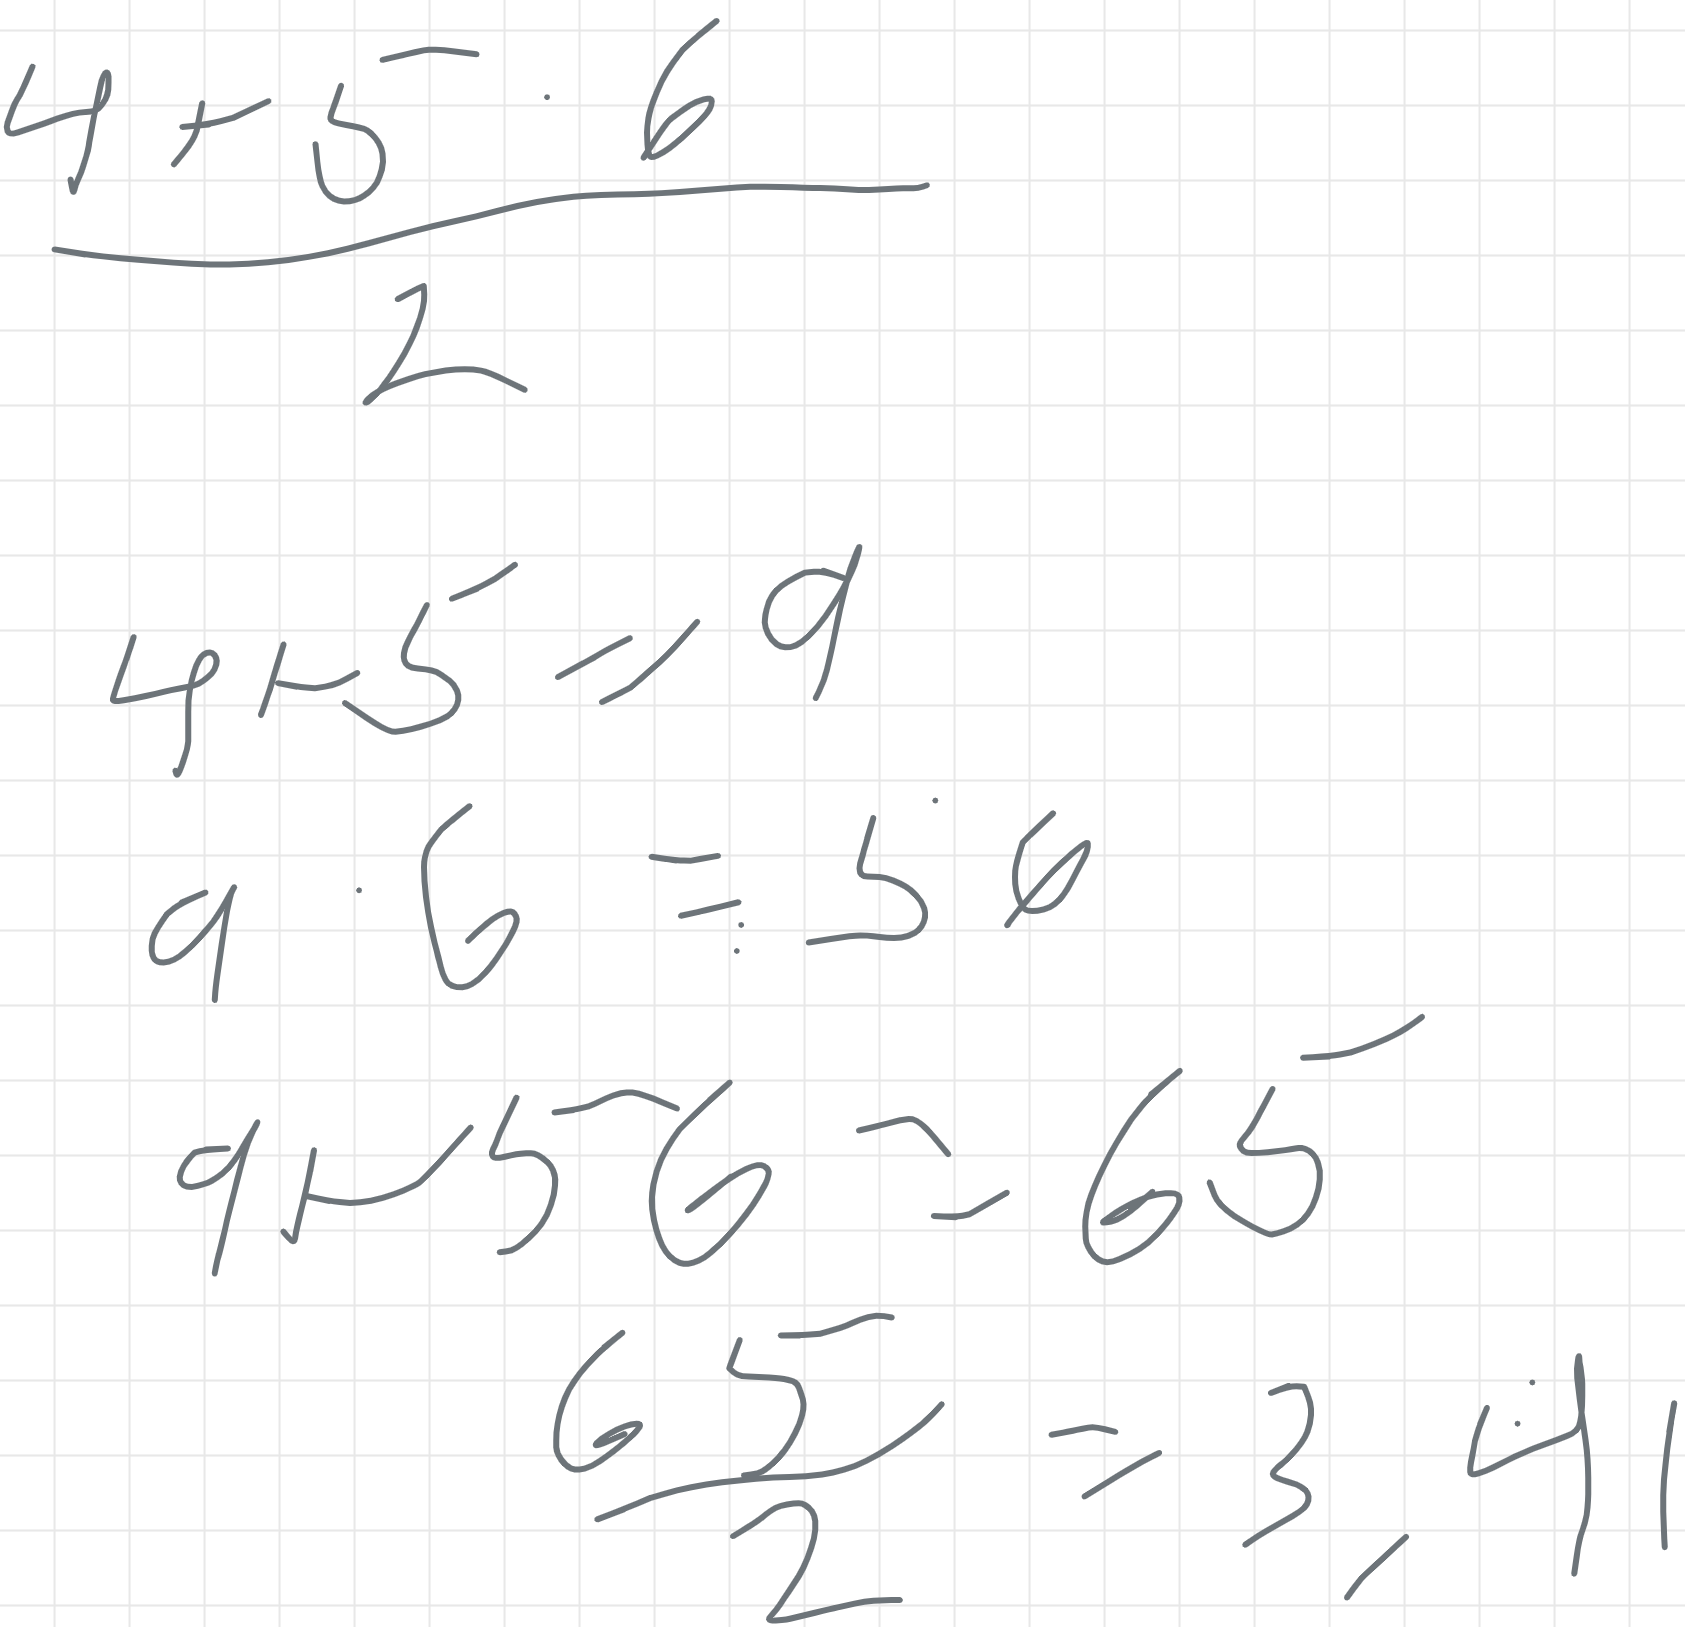 4 + 5 · 6
2
4 + 5 = 9
9 · 6 = 56
9 + 56 = 65
65
2 = 3,41